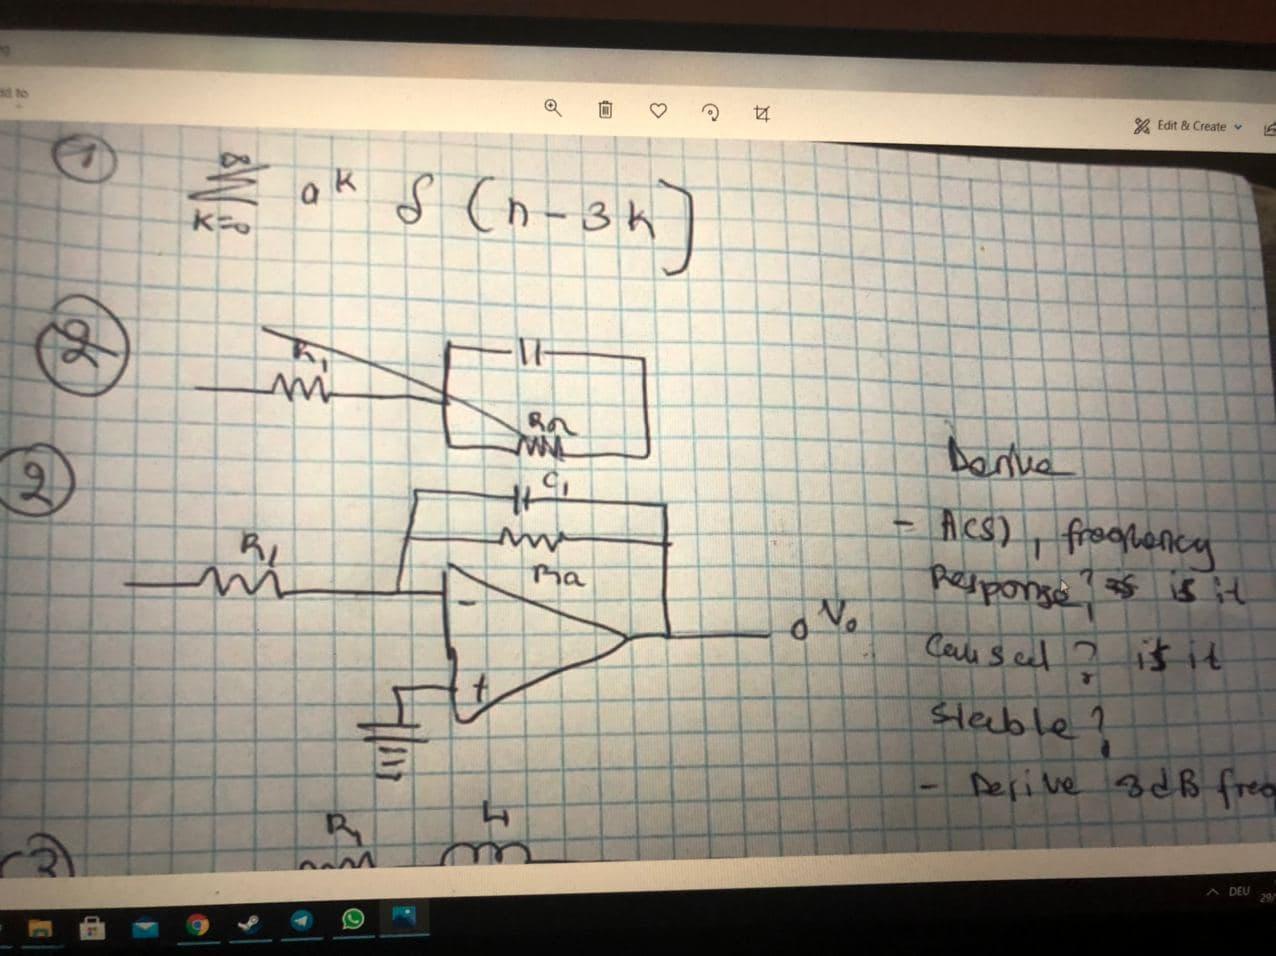 Edit & Create
1
∞
Σ a^k δ (n - 3k]
k=0
2
R1
R2
2
C1
R1
R2
-
+
o Vo
Derive
- A(s), frequency
Response? is it
Causal? is it
Stable?
- Derive 3dB freq
3
R1
L1
DEU
29/